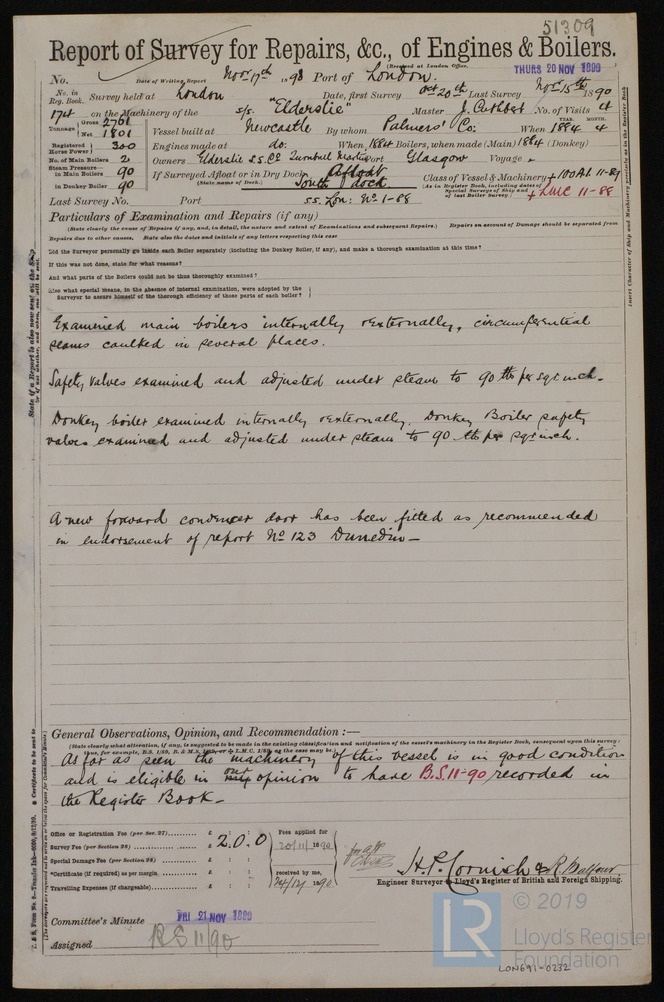 51309
Report of Survey for Repairs, &c., of Engines & Boilers.
(Received at London Office,
THURS 20 NOV 1890
No. Date of Writing Report Novr 17th 1890 Port of London.
No. in Reg. Book. Survey held at London Date, first Survey Oct 20th Last Survey Novr 15th 1890
174 on the Machinery of the s/s "Elderslie" Master J. Cuthbert No. of Visits 4
Tonnage Gross 2761 Net 1801 Vessel built at Newcastle By whom Palmers' Co: When 1884 4 YEAR. MONTH.
Registered Horse Power 300 Engines made at do. When, 1884 Boilers, when made (Main) 1884 (Donkey)
No. of Main Boilers 2 Owners Elderslie S.S. Co Turnbull Martin Port Glasgow Voyage
Steam Pressure— in Main Boilers 90 If Surveyed Afloat or in Dry Dock Afloat Class of Vessel & Machinery +100A1 11-89
in Donkey Boiler 90 (State name of Dock.) South dock (As in Register Book, including dates of Special Surveys of Ship and of last Boiler Survey.) + LMC 11-88
Last Survey No. Port S.S. Lon: No 1-88
Particulars of Examination and Repairs (if any)
(State clearly the cause of Repairs if any, and, in detail, the nature and extent of Examinations and subsequent Repairs.) Repairs on account of Damage should be separated from
Repairs due to other causes. State also the dates and initials of any letters respecting this case
Did the Surveyor personally go inside each Boiler separately (including the Donkey Boiler, if any), and make a thorough examination at this time?
If this was not done, state for what reasons?
And what parts of the Boilers could not be thus thoroughly examined?
Also what special means, in the absence of internal examination, were adopted by the
Surveyor to assure himself of the thorough efficiency of those parts of each boiler?
Examined main boilers internally & externally, circumferential
seams caulked in several places.
Safety valves examined and adjusted under steam to 90 lbs per sq inch.
Donkey boiler examined internally & externally. Donkey Boiler safety
valves examined and adjusted under steam to 90 lbs per sq inch.
A new forward condenser door has been fitted as recommended
in endorsement of report No 123 Dunedin—
General Observations, Opinion, and Recommendation :—
(State clearly what alteration, if any, is suggested to be made in the existing classification and notification of the vessel's machinery in the Register Book, consequent upon this survey:
thus, for example, B.S. 1/89, B. & M.S. 1/89, or + L.M.C. 1/89, as the case may be.)
As far as seen the machinery of this vessel is in good condition
and is eligible in our opinion to have B.S.11-90 recorded in
the Register Book—
Office or Registration Fee (per Sec. 27) £ : :
Survey Fee (per Section 28) £ 2 . 0 . 0
Special Damage Fee (per Section 28) £ : :
*Certificate (if required) as per margin £ : :
Travelling Expenses (if chargeable) £ : :
Fees applied for
20/11/1890
received by me,
1890
H.P. Cornish & R Balfour
Engineer Surveyor to Lloyd's Register of British and Foreign Shipping.
Committee's Minute FRI 21 NOV 1890
Assigned BS 11/90
State if a Report is also now sent on the Ship
or if not whether, and when, one will be sent.
Insert Character of Ship and Machinery precisely as in the Register Book
LR
© 2019
Lloyd's Register
Foundation
LON691-0232